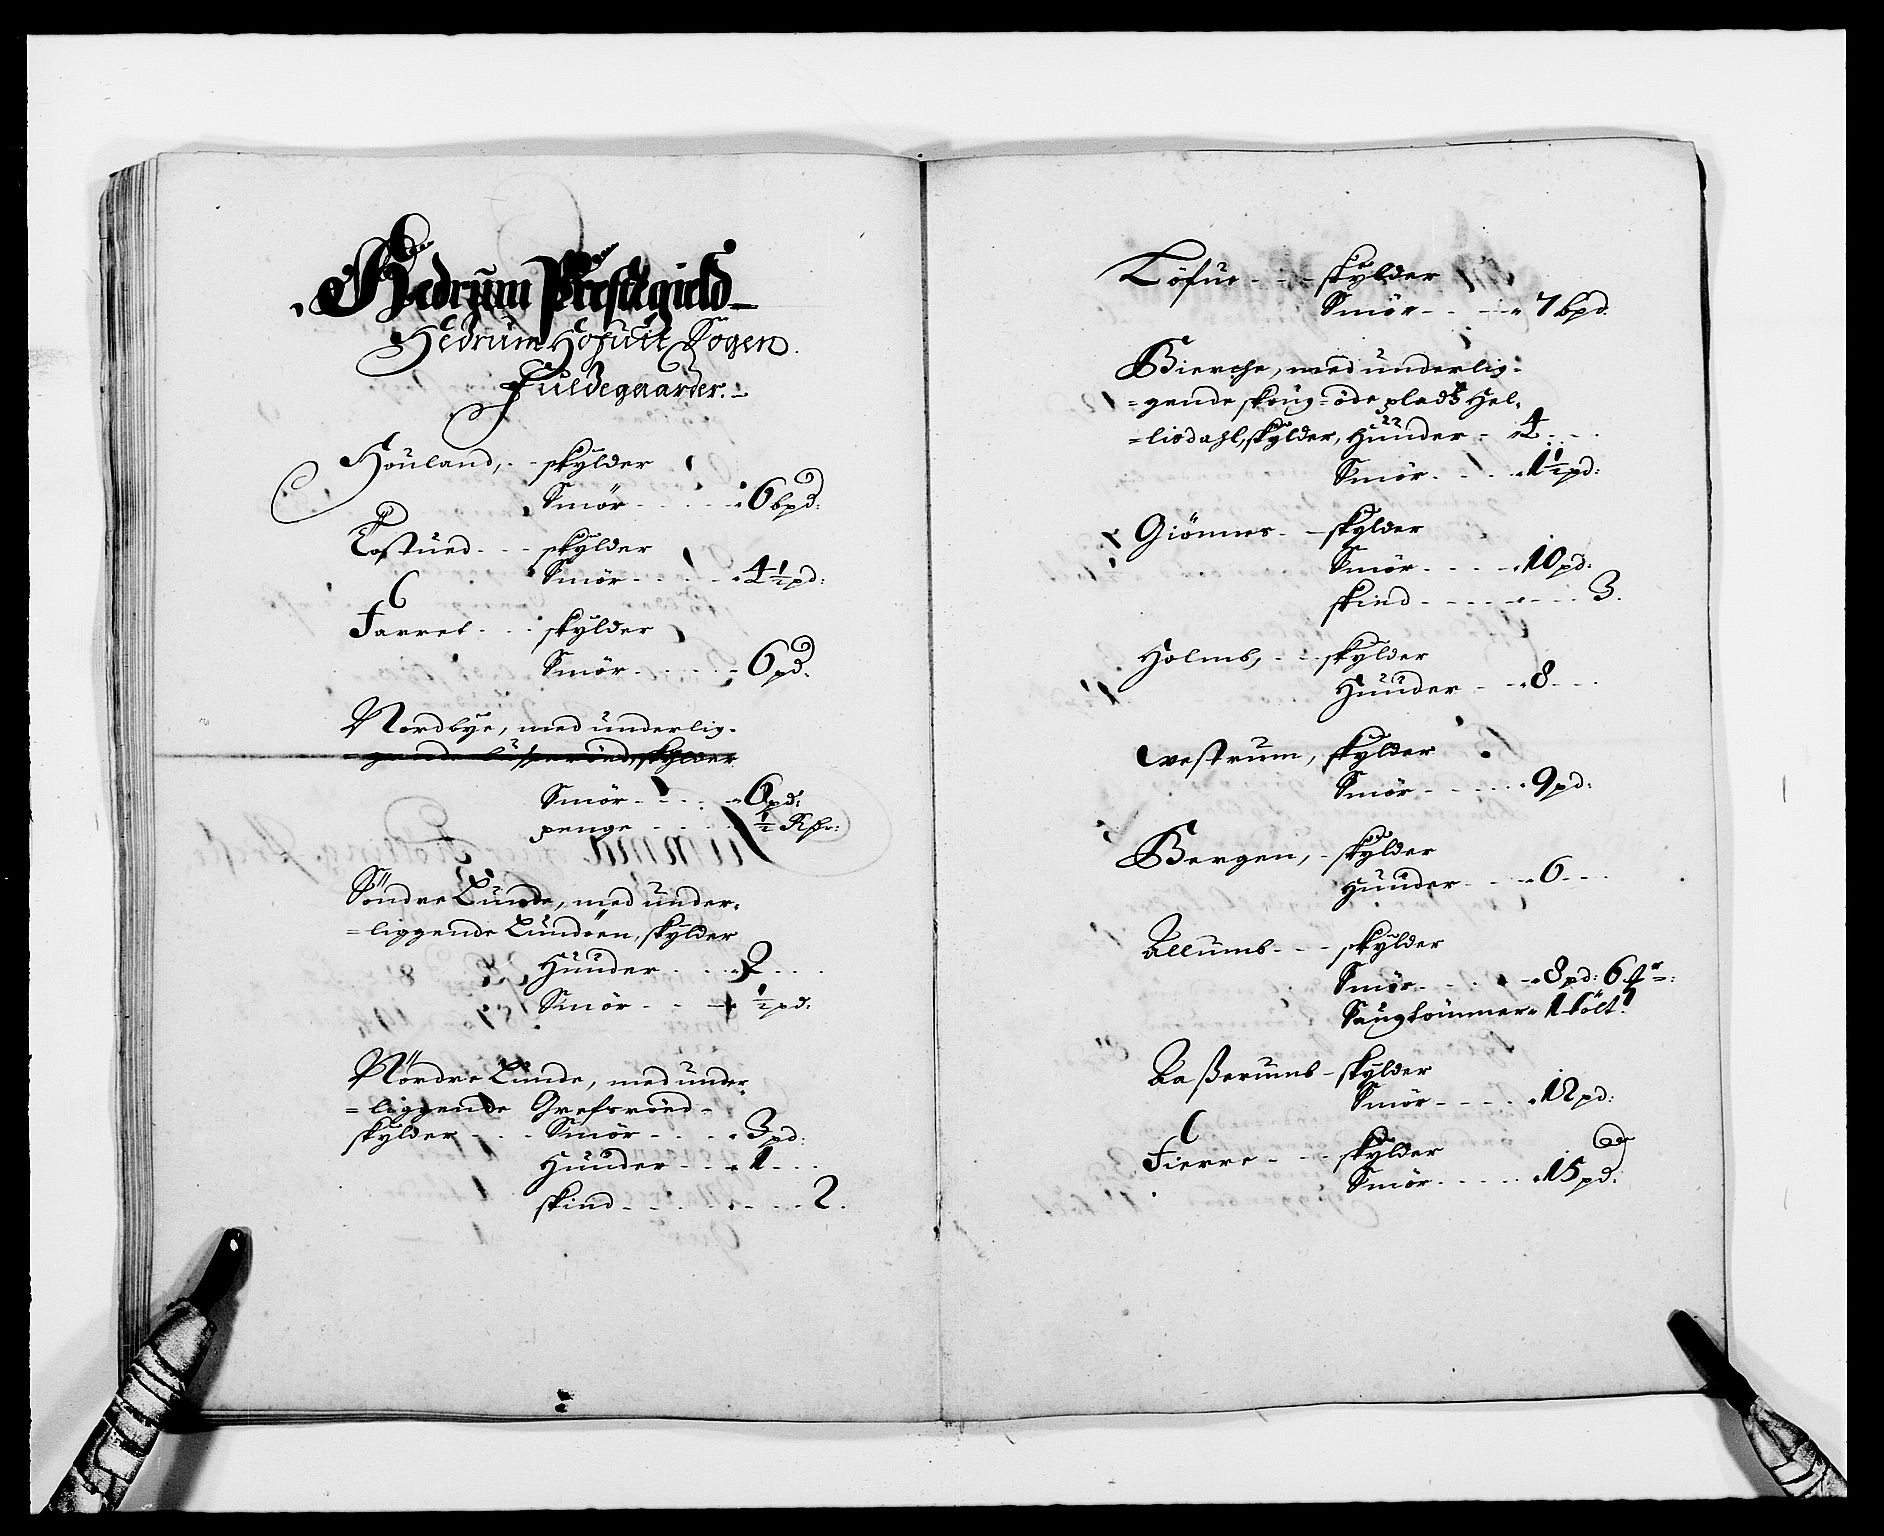 Hedrum Prestegield
Hedrum Hofuit Sogen
Fuldegaarder.
Houland, skylder
Smör - 6 bpd:
Tostued - skylder
Smör - 4 1/2 pd:
Farret - skylder
Smör - 6 pd.
Nordbye, med underlig-
=gende skylder
Smör - 6 pd:
penge - 1/2
Söndre Lunde, med under-
=liggende Lundöen, skylder
Huuder - 2
Smör - 1/2 pd:
Nördre Lunde, med under
=liggende Grefsröed -
skylder - Smör - 3 pd:
Huuder - 1
skind - 2.
Löfue - skylder
Smör - 7 bpd.
Bierche, med underlig-
=gende skoug= öde plads Hel-
=lisdahl, skylder, Huuder - 4
Smör - 1 1/2 pd:
Giönnes - skylder
Smör - 10 pd:
skind - 3.
Holmb, - skylder
Huuder - 8
westrum, skylder
Smör - 9 pd:
Bergen, - skylder
Huuder - 6
Allumb - skylder
Smör - 8 pd: 6
Saugtömmer 1 tölt
Baßerumb - skylder
Smör - 12 pd:
Fierre - skylder
Smör - 15 pd: